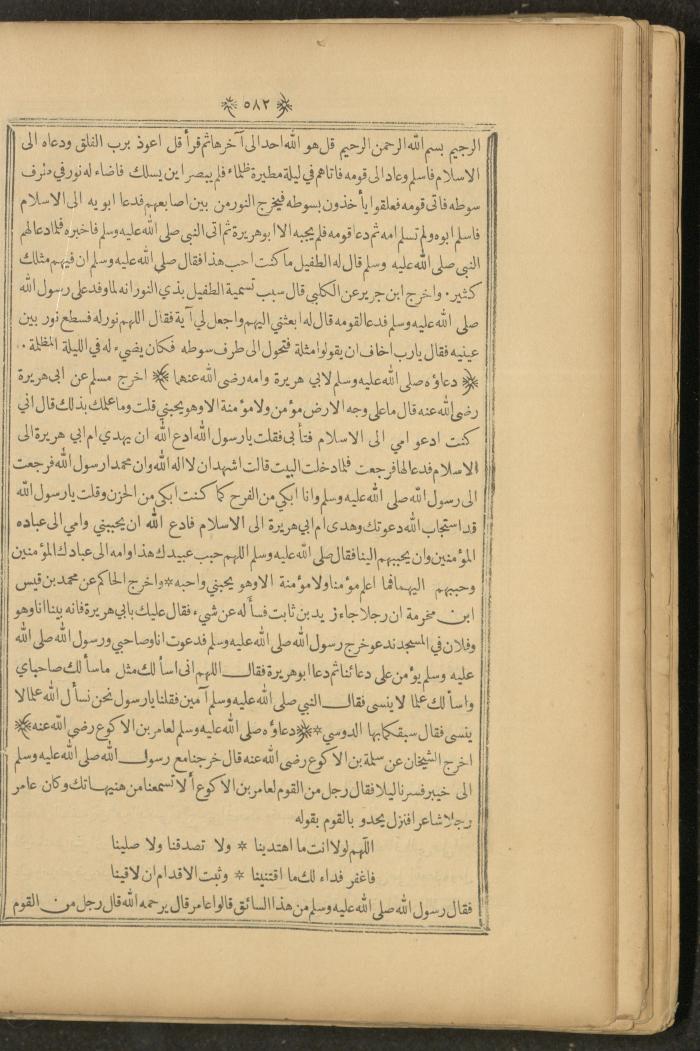 ٥٨٢
الرجيم بسم الله الرحمن الرحيم قل هو الله احد الى آخرها ثم قرأ قل اعوذ برب الفلق ودعاه الى
الاسلام فاسلم وعاد الى قومه فاتاهم في ليلة مطيرة ظلماء فلم يبصر اين يسلك فاضاء له نور في طرف
سوطه فاتى قومه فعلقوا يأخذون بسوطه فيخرج النور من بين اصابعهم فدعا ابويه الى الاسلام
فاسلم ابوه ولم تسلم امه ثم دعا قومه فلم يجبه الا ابو هريرة ثم اتى النبي صلى الله عليه وسلم فاخبره فلما دعا لهم
النبي صلى الله عليه وسلم قال له الطفيل ما كنت احب هذا فقال صلى الله عليه وسلم ان فيهم مثلك
كثير. واخرج ابن جرير عن الكلبي قال سبب تسمية الطفيل بذي النور انه لما وفد على رسول الله
صلى الله عليه وسلم فدعا لقومه قال له ابعثني اليهم واجعل لي آية فقال اللهم نور له فسطع نور بين
عينيه فقال يارب اخاف ان يقولوا مثلة فتحول الى طرف سوطه فكان يضيء له في الليلة المظلمة .
﴿ دعاؤه صلى الله عليه وسلم لابي هريرة وامه رضى الله عنهما ﴾ اخرج مسلم عن ابى هريرة
رضى الله عنه قال ما على وجه الارض مؤمن ولا مؤمنة الا وهو يحبني قلت وما علمك بذلك قال اني
كنت ادعو امي الى الاسلام فتأبى فقلت يارسول الله ادع الله ان يهدي ام ابي هريرة الى
الاسلام فدعا لها فرجعت فلما دخلت البيت قالت اشهد ان لا اله الله وان محمدا رسول الله فرجعت
الى رسول الله صلى الله عليه وسلم وانا ابكي من الفرح كما كنت ابكي من الحزن وقلت يارسول الله
قد استجاب الله دعوتك وهدى ام ابي هريرة الى الاسلام فادع الله ان يحببني وامي الى عباده
المؤمنين وان يحببهم الينا فقال صلى الله عليه وسلم اللهم حبب عبيدك هذا وامه الى عبادك المؤمنين
وحببهم اليهما فما اعلم مؤمنا ولا مؤمنة الا وهو يحبني واحبه * واخرج الحاكم عن محمد بن قيس
ابن مخرمة ان رجلا جاء زيد بن ثابت فسأله عن شيء فقال عليك بابي هريرة فانه بينا انا وهو
وفلان في المسجد ندعو خرج رسول الله صلى الله عليه وسلم فدعوت انا وصاحبي ورسول الله صلى الله
عليه وسلم يؤمن على دعائنا ثم دعا ابو هريرة فقال اللهم انى اسألك مثل ما سألك صاحباي
واسألك علما لا ينسى فقال النبي صلى الله عليه وسلم آمين فقلنا يارسول نحن نسأل الله علما لا
ينسى فقال سبقكما بها الدوسي * ﴿ دعاؤه صلى الله عليه وسلم لعامر بن الاكوع رضى الله عنه ﴾
اخرج الشيخان عن سلمة بن الاكوع رضى الله عنه قال خرجنا مع رسول الله صلى الله عليه وسلم
الى خيبر فسرنا ليلا فقال رجل من القوم لعامر بن الاكوع ألا تسمعنا من هنيهاتك وكان عامر
رجلا شاعرا فنزل يحدو بالقوم بقوله
اللهم لولا انت ما اهتدينا * ولا تصدقنا ولا صلينا
فاغفر فداء لك ما اقتنينا * وثبت الاقدام ان لاقينا
فقال رسول الله صلى الله عليه وسلم من هذا السائق قالوا عامر قال يرحمه الله قال رجل من القوم